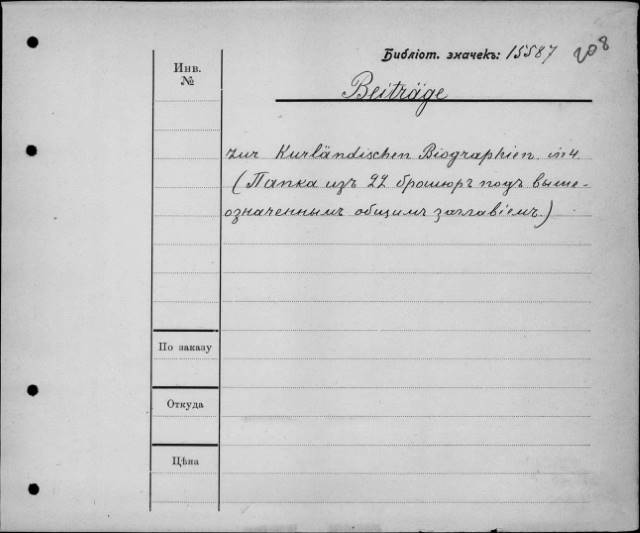 Библіот. значекъ: 15587 208
Инв.
№
Beiträge
zur Kurländischen Biographien. in 4.
(Папка изъ 22 брошюръ подъ выше-
означеннымъ общимъ заглавіемъ.)
По заказу
Откуда
Цѣна